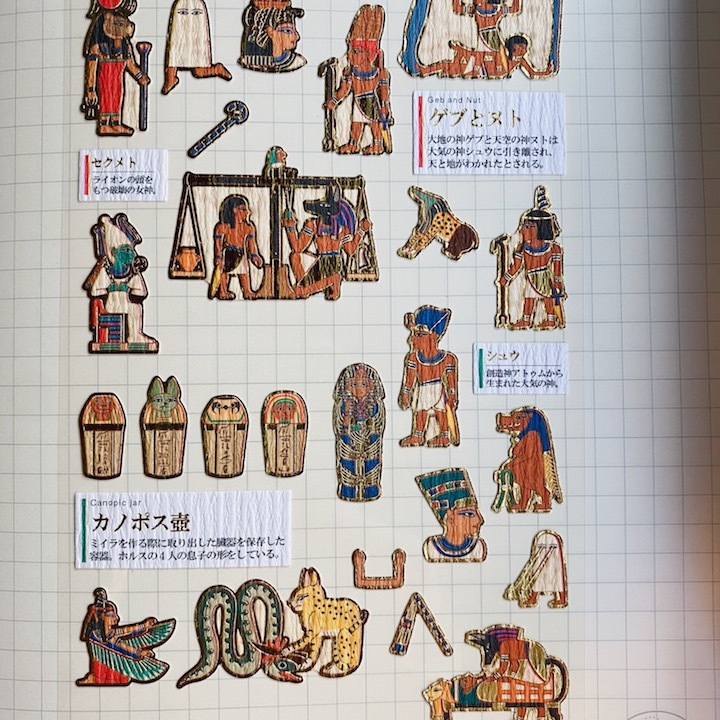 Geb and Nut
ゲブとヌト
大地の神ゲブと天空の神ヌトは
大気の神シュウに引き離され、
天と地がわかれたとされる。
セクメト
ライオンの頭を
もつ破壊の女神。
シュウ
創造神アトゥムから
生まれた大気の神。
Canopic jar
カノポス壺
ミイラを作る際に取り出した臓器を保存した
容器。ホルスの4人の息子の形をしている。